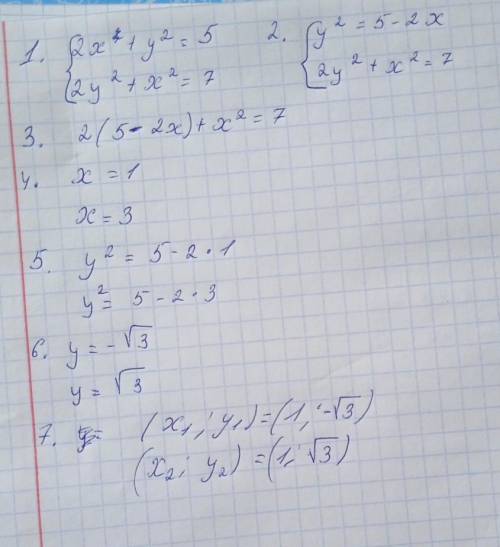 1. { 2x + y² = 5    2. { y² = 5 - 2x
2y² + x² = 7    2y² + x² = 7
3. 2(5 - 2x) + x² = 7
4. x = 1
x = 3
5. y² = 5 - 2 · 1
y² = 5 - 2 · 3
6. y = -√3
y = √3
7. (x₁; y₁) = (1; -√3)
(x₂; y₂) = (1; √3)